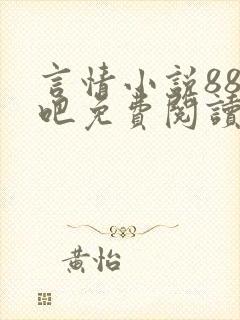 言情小説88
吧免費閱讀
黃怡